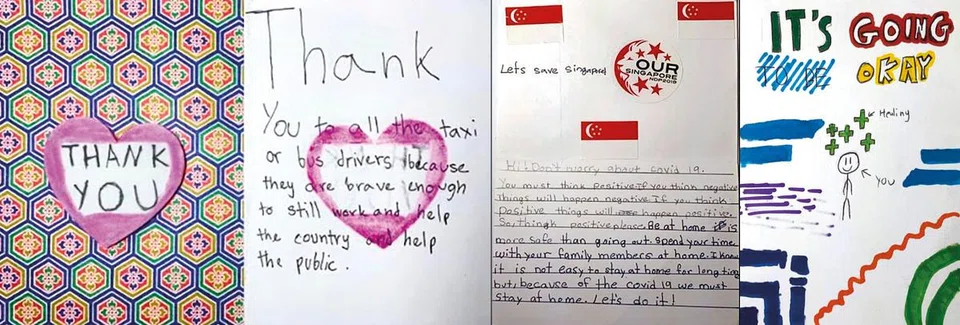 THANK
YOU
Thank
You to all the taxi
or bus drivers because
they are brave enough
to still work and help
the country and help
the public.
Lets save Singapore
OUR
SINGAPORE
NDP2019
Hi! Don't worry about covid 19.
You must think Positive. If you think negative
things will happen negative. If you think
Positive things will happen positive.
So, thingh positive please. Be at home it is
more safe than going out. Spend your time
with your family members at home. I know
it is not easy to stay at home for long time
but, because of the covid 19 we must
stay at home. Let's do it!
IT'S GOING
TO BE OKAY
Healing
YOU